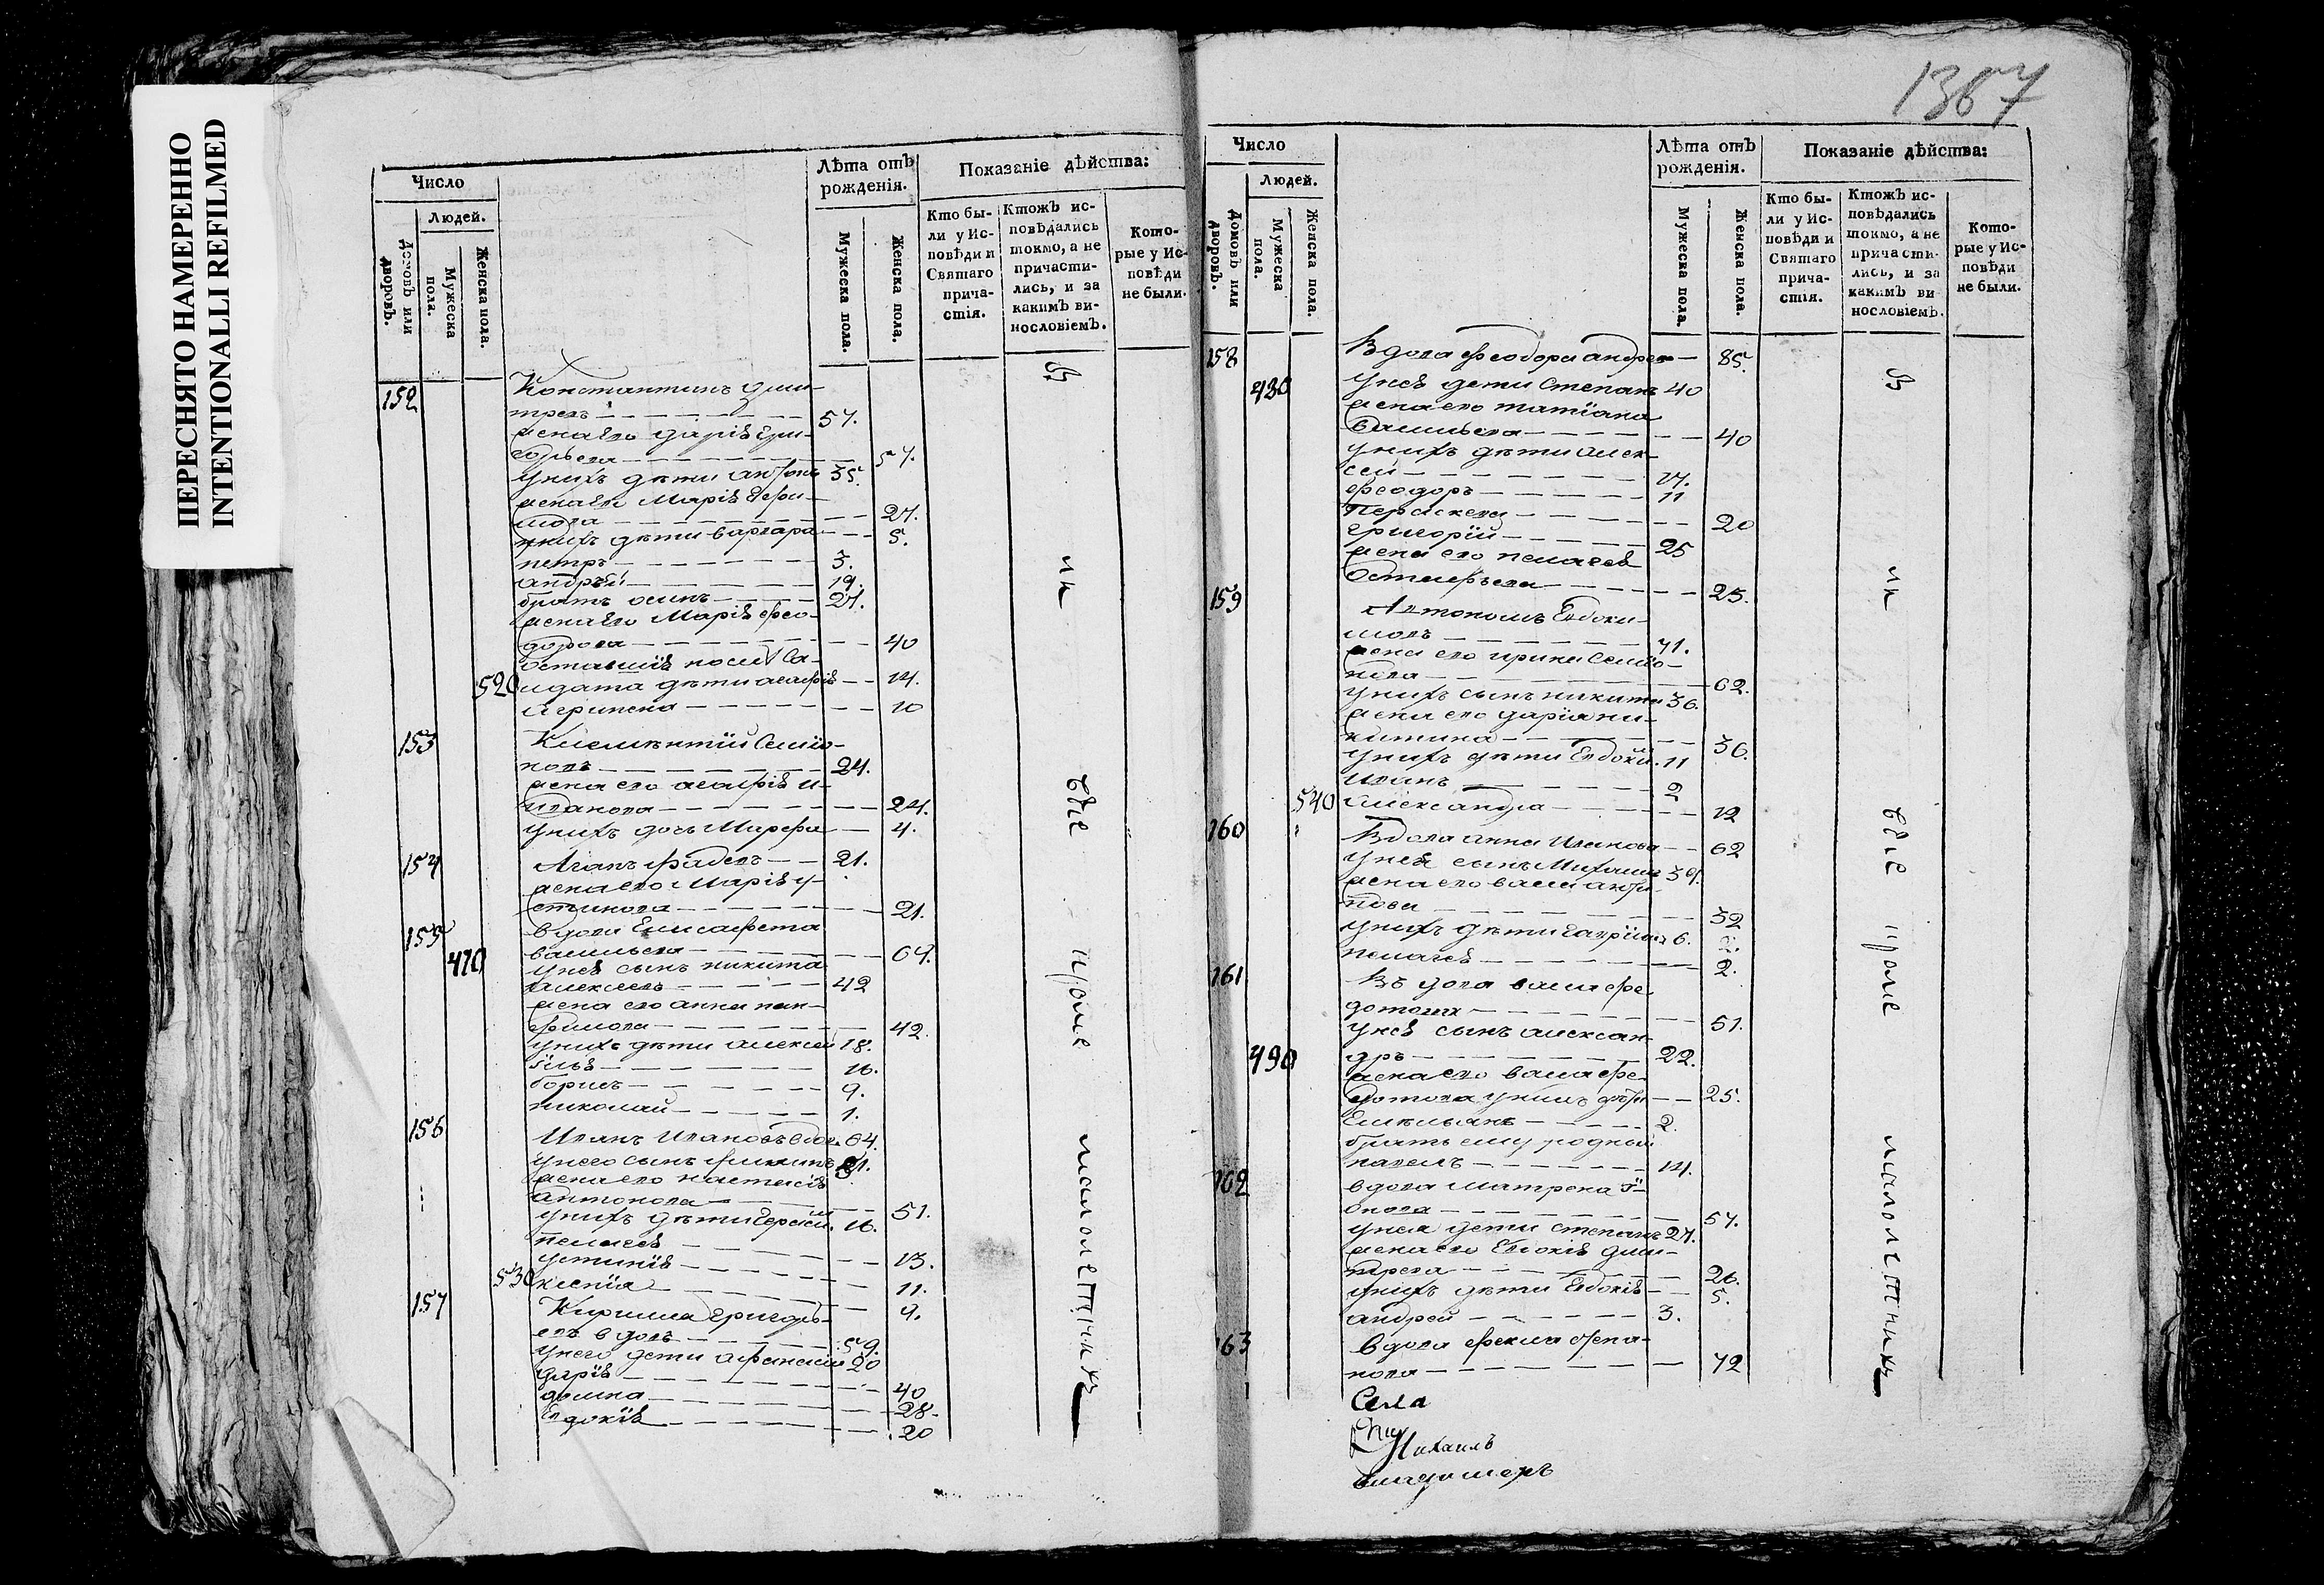 ПЕРЕСНЯТО НАМЕРЕННО
INTENTIONALLI REFILMED
Число
Людей.
Домовъ или дворовъ.
Мужеска пола.
Женска пола.
Лѣта отъ рожденія.
Мужеска пола.
Женска пола.
Показаніе дѣйства:
Кто бы-
ли у Ис-
повѣди и
Святаго
прича-
стія.
Ктожъ ис-
повѣдались
токмо, а не
причасти-
лись, и за
какимъ ви-
нословіемъ.
Кото-
рые у Ис-
повѣди
не были.
152 Константинъ дми-
тревъ 57.
жена его даріѣ гри-
горьева 57.
унихъ дѣти антонъ 35.
жена его Маріѣ Ефи-
мова 27.
унихъ дѣти варвара 5.
петръ 3.
андрѣй 19.
братъ осипъ 27.
жена его Маріѣ фео-
дорова 40
520 дѣти агафіѣ 14.
Агрипена 10
153 Климѣнтій Семіо-
новъ 24.
жена его агафіѣ и-
ванова 24.
унихъ дочь Марфа 4.
154 Агапъ фадевъ 21.
жена его Маріѣ у-
стинова 21.
155 вдова Елисафета
васильева 64.
470 унеѣ сынъ никита
алексеевъ 42
жена его анна пан-
филова 42.
унихъ дѣти алексей 18.
ильѣ 16.
борисъ 9.
николай 1.
156 Иванъ Ивановъ вдов. 64.
унего сынъ филипъ
жена его настасіѣ
антонова 51.
унихъ дѣти герасим. 16.
пелагеѣ 13.
устиніѣ 11.
530 ксеніа 9.
157 Кирила григорь-
евъ вдовъ 59.
унего дети афанасій 20
даріѣ 40
домна 28.
Евдокіѣ 20
В
ик
ѣде
кроме
малолетнихъ
1367
Число
Людей.
Домовъ или дворовъ.
Мужеска пола.
Женска пола.
Лѣта отъ рожденія.
Мужеска пола.
Женска пола.
Показаніе дѣйства:
Кто бы-
ли у Ис-
повѣди и
Святаго
прича-
стія.
Ктожъ ис-
повѣдались
токмо, а не
причасти-
лись, и за
какимъ ви-
нословіемъ.
Кото-
рые у Ис-
повѣди
не были.
158 Вдова феодора андрев 85.
480 унеѣ дети Степанъ 40
жена его татіана
васильева 40
унихъ дѣти алек-
сей 17.
феодоръ 11
Параскева 20
григорій 25
жена его пелагеѣ
Остафьева 25.
159 Автономъ Евдоки-
мовъ 71.
жена его ирина Семіо-
нова 62.
унихъ сынъ никита 36.
жена его дарія ни-
китина 36.
унихъ дѣти Евдоким. 11
Иванъ 2
540 Александра 12
160 Вдова анна Иванова 62
унеѣ сынъ Михаила 39.
жена его васса антѡ-
нова 32
унихъ дѣти гаврила 6.
пелагеѣ 2.
161 Въдова васса фе-
дотова 51.
унеѣ сынъ алексан-
490 дръ 22.
жена его васса фе-
дотова унихъ дѣти 25.
Емельянъ 2.
братъ ему родный
павелъ 14.
162 вдова Матрена
57.
унея дети Степанъ 27.
жена его Евдокіѣ дми-
трева 26.
унихъ дѣти Евдокіѣ 5.
андрей 3.
163 вдова фекла
нова 72
Села
Михаилъ
владимеръ
В
ик
ѣде
кроме
малолетнихъ